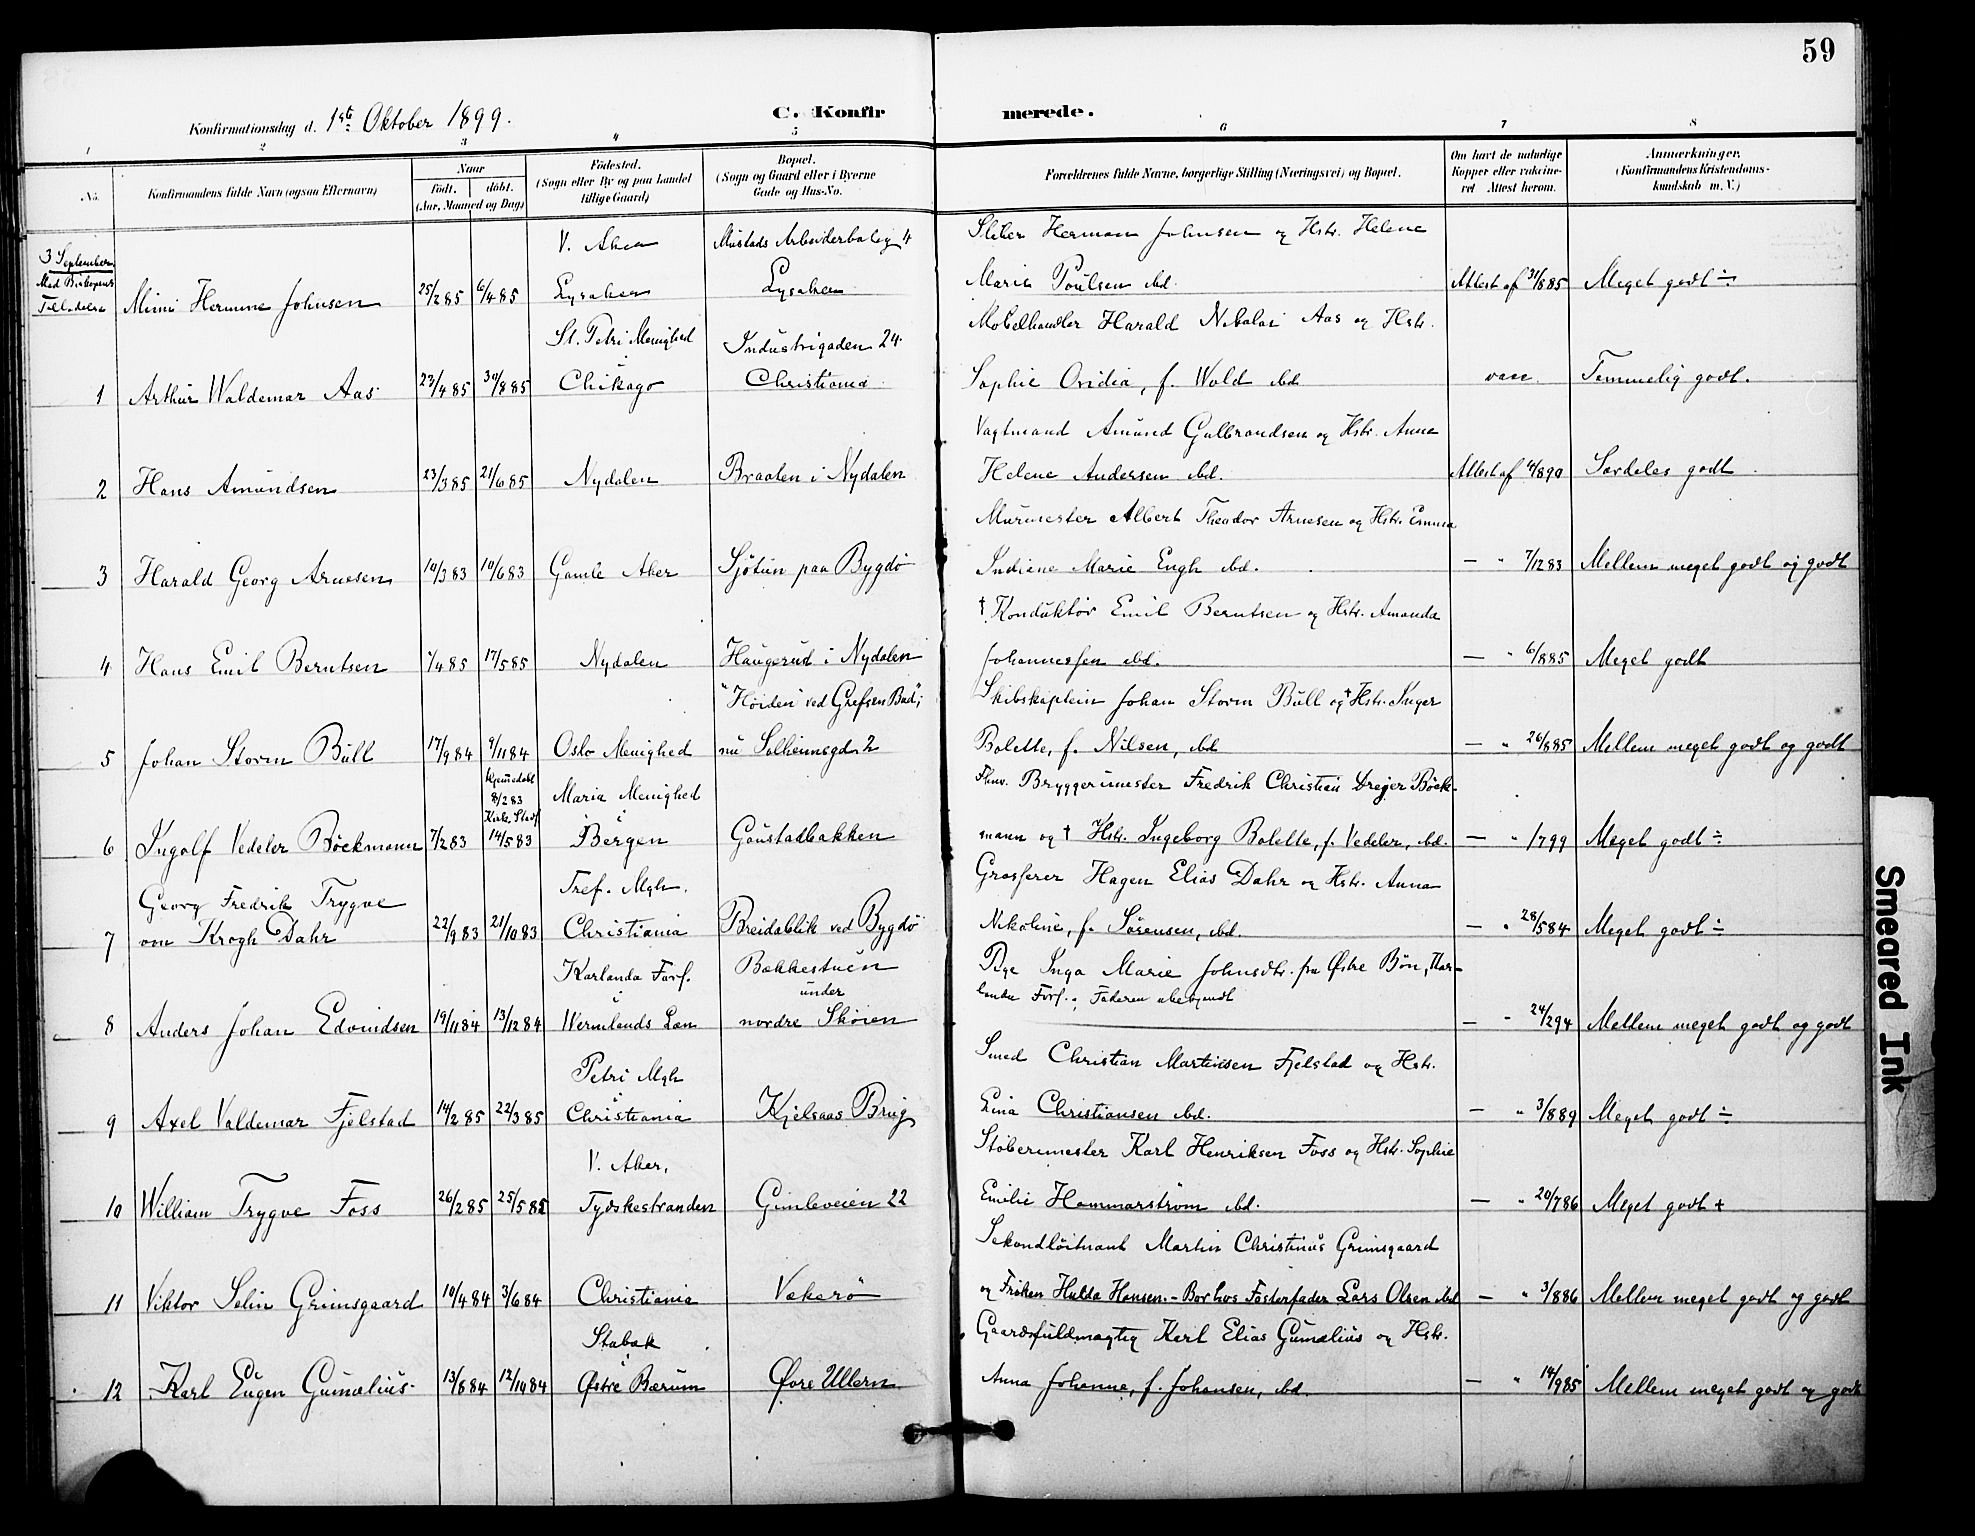 59
Konfirmationsdag d. 1ste Oktober 1899.
C. Konfirmerede.
1 2 3 4 5 6 7 8
No.
Konfirmandens fulde Navn (ogsaa Efternavn)
Naar
født. døbt.
(Aar, Maaned og Dag)
Fødested.
(Sogn eller By og paa Landet
tillige Gaard)
Bopæl.
(Sogn og Gaard eller i Byerne
Gade og Hus-No.
Forældrenes fulde Navne, borgerlige Stilling (Næringsvei) og Bopæl.
Om havt de naturlige
Kopper eller vaccine-
ret Attest herom.
Anmærkninger.
(Konfirmandens Kristendoms-
kundskab m. V.)
3 September
Med Biskopens
Tilladelse
Mimi Hermine Johnsen
25/2 85 6/4 85
V. Aker
Lysaker
Mustads Arbeiderbolig 4
Lysaker
Sliber Herman Johnsen og Hstr. Helene
Marie Poulsen ibd.
Attest af 31/8 85
Meget godt ÷
1 Arthur Waldemar Aas
23/4 85 30/8 85
St. Petri Menighed
i
Chikago
Industrigaden 24
Christiania
Møbelhandler Harald Nikolai Aas og Hstr.
Sophie Ovidia, f. Wold ibd.
vacc.
Temmelig godt.
2 Hans Amundsen
23/3 85 21/6 85
Nydalen
Braaten i Nydalen
Vagtmand Amund Gulbrandsen og Hstr. Anne
Helene Andersen ibd.
Attest af 4/8 90
Særdeles godt
3 Harald Georg Arnesen
10/3 83 10/6 83
Gamle Aker
Sjøtun paa Bygdø
Murmester Albert Theodor Arnesen og Hstr. Emma
Indiane Marie Engh ibd.
— " 7/12 83
Mellem meget godt og godt
4 Hans Emil Berntsen
1/4 85 17/5 85
Nydalen
Haugerud i Nydalen
† Konduktør Emil Berntsen og Hstr. Amanda
Johannesen ibd.
— " 6/8 85
Meget godt
5 Johan Storm Bull
17/9 84 9/11 84
Oslo Menighed
"Høiden" ved Grefsen Bad;
nu Solheimsgd. 2
Skibskaptein Johan Storm Bull og † Hstr. Inger
Bolette, f. Nilsen, ibd
— " 26/8 85
Mellem meget godt og godt
6 Ingolf Vedeler Böckmann
7/2 83
Hjemedøbt
8/2 83
Kirk. Stadf.
14/5 83
Maria Menighed
i
Bergen
Gaustadbakken
Fhnv. Bryggerimester Fredrik Christian Dreyer Böck-
mann og † Hstr. Ingeborg Bolette, f. Vedeler, ibd.
— " 1/7 99
Meget godt ÷
7 Georg Fredrik Trygve
von Krogh Dahr
22/9 83 21/10 83
Tref. Mgh.
Christiania
Breidablik ved Bygdø
Grosserer Hagen Elias Dahr og Hstr. Anna
Nikoline, f. Sørensen, ibd.
— " 28/5 84
Meget godt ÷
8 Anders Johan Edvindsen
19/11 84 13/12 84
Karlanda Forf.
i
Wermlands Læn
Bækkestuen
under
nordre Skøien
Pge Inga Marie Johnsdtr. fra Østre Bøn, Kar-
landa Forf.; Faderen ubekjendt
— " 24/2 94
Mellem meget godt og godt
9 Axel Valdemar Fjelstad
14/2 85 22/3 85
Petri Mgh
i
Christiania
Kjelsaas Brug
Smed Christian Martinsen Fjelstad og Hstr.
Lina Christiansen ibd.
— " 3/8 89
Meget godt ÷
10 William Trygve Foss
26/2 85 25/5 85
V. Aker,
Tydskestranden
Gimleveien 22
Støberimester Karl Henriksen Foss og Hstr. Sophie
Emilie Hammarstrøm ibd.
— " 20/7 86
Meget godt +
11 Viktor Selin Grimsgaard
10/4 84 3/6 84
Christiania
Vækerø
Sekondløitnant Martin Christinus Grimsgaard
og Frøken Hulda Hansen. - Bor hos Fosterfader Lars Olsen ibd
— " 3/8 86
Mellem meget godt og godt
12 Karl Eugen Gumælius
13/8 84 12/10 84
Stabæk
i
Østre Bærum
Øvre Ullern
Gaardsfuldmægtig Karl Elias Gumælius og Hstr.
Anna Johanne, f. Johansen, ibd.
— " 14/9 85
Mellem meget godt og godt
Smeared Ink